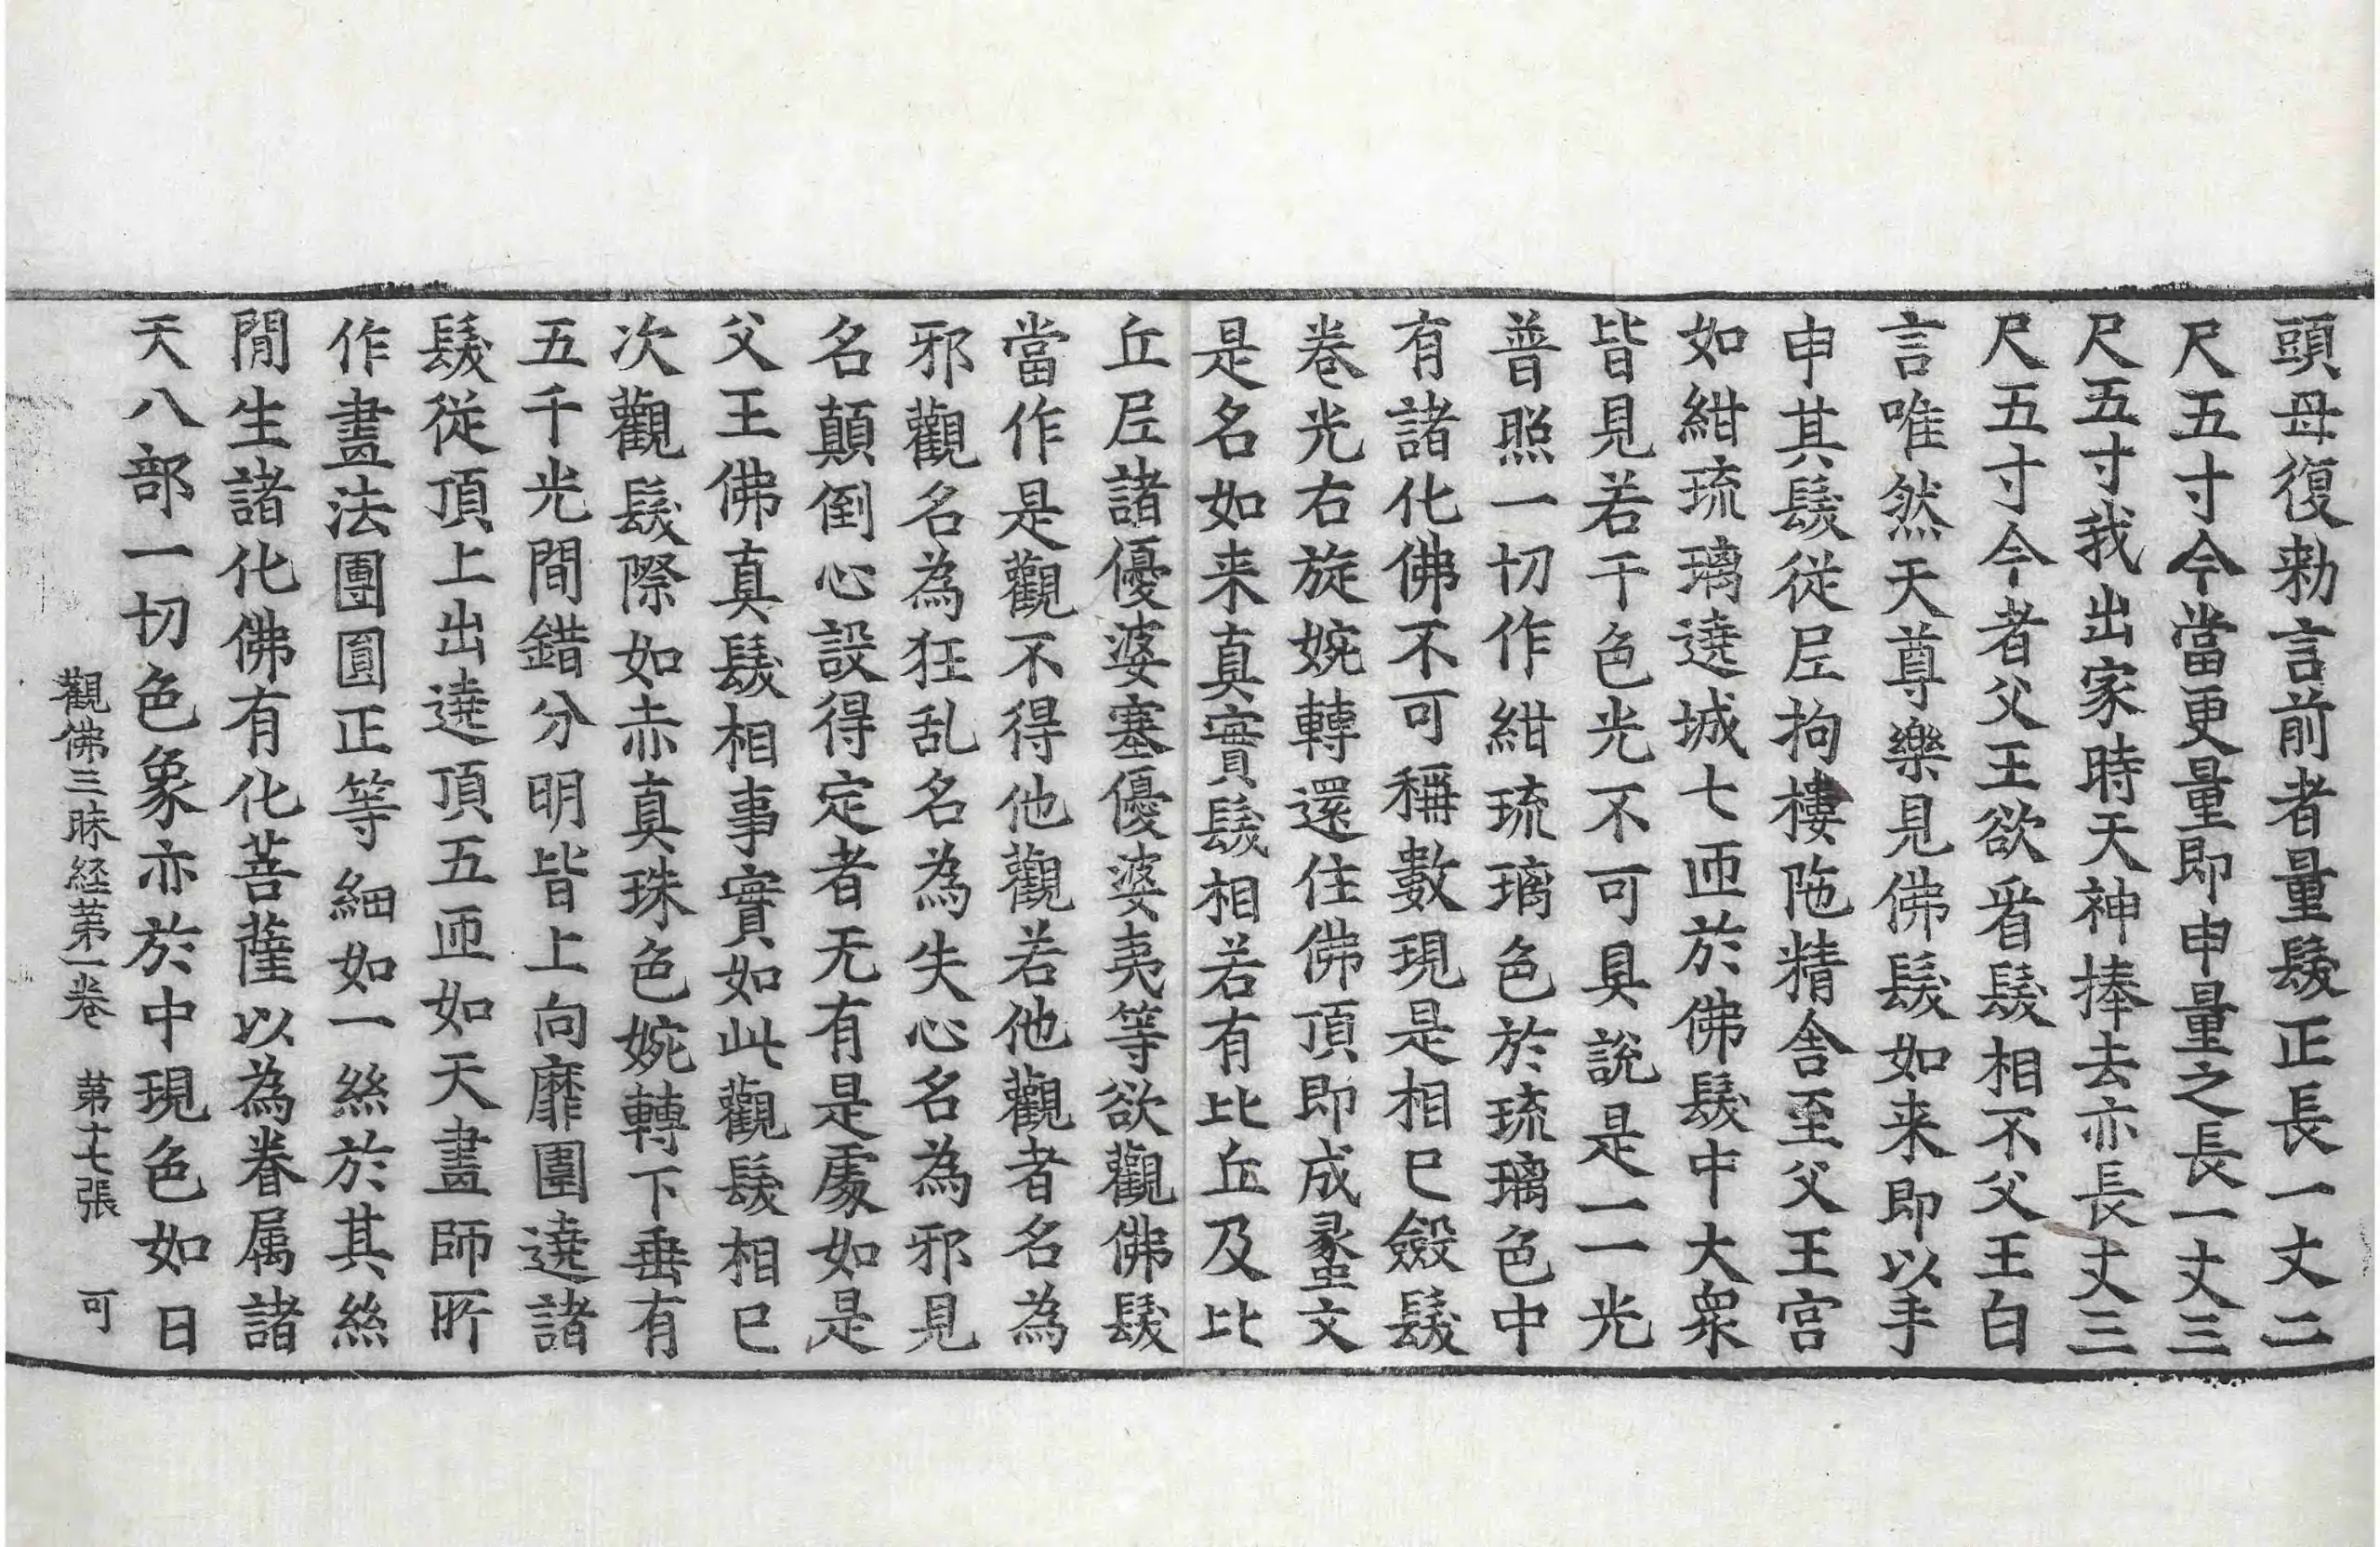 頭母復勑言前者量髮正長一丈二
尺五寸今當更量即申量之長一丈三
尺五寸我出家時天神捧去亦長丈三
尺五寸今者父王欲㸔髮相不父王白
言唯然天尊樂見佛髮如来即以手
申其髮從𡰱拘樓陁精舎至父王宫
如紺琉璃遶城七匝於佛髮中大衆
皆見若干色光不可具說是一一光
普照一切作紺琉璃色於琉璃色中
有諸化佛不可稱數現是相已斂髮
卷光右旋婉轉還住佛頂即成蠡文
是名如来真實髮相若有比丘及比
丘𡰱諸優婆塞優婆夷等欲觀佛髮
當作是觀不得他觀若他觀者名為
邪觀名為狂乱名為失心名為邪見
名顛倒心設得定者无有是處如是
父王佛真髮相事實如此觀髮相已
次觀髮際如赤真珠色婉轉下垂有
五千光間錯分明皆上向靡圍遶諸
髮從頂上出遶頂五匝如天畫師所
作畫法團圓正等細如一絲於其絲
間生諸化佛有化菩薩以為眷属諸
天八部一切色象亦於中現色如日
觀佛三昧経第一卷　第十七張　可